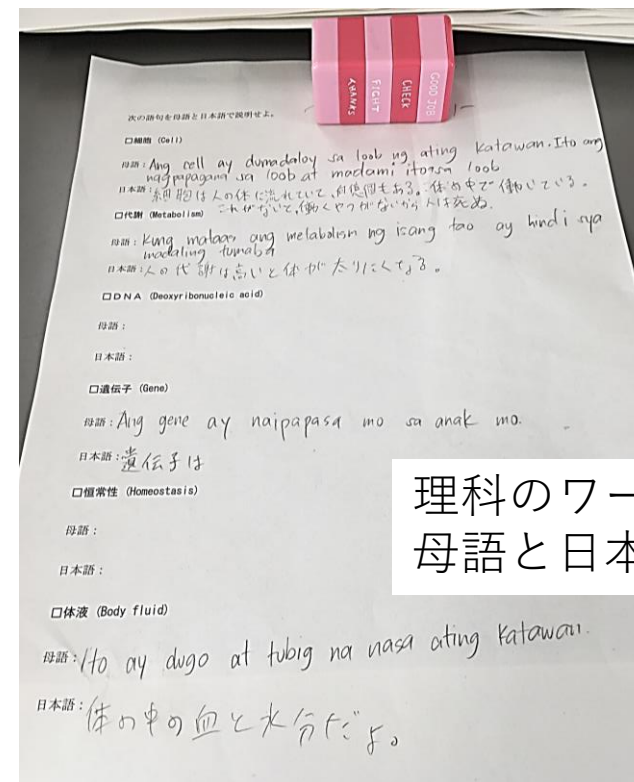 GOOD JOB
CHECK
FIGHT
THANKS
次の語句を母語と日本語で説明せよ。
□細胞 (Cell)
母語：Ang cell ay dumadaloy sa loob ng ating katawan. Ito ang
nagpapagana sa loob at madami ito sa loob
日本語：細胞は人の体に流れていて、何億個もある。体の中で働いている。
これがないと、働くやつがないから人は死ぬ.
□代謝 (Metabolism)
母語：Kung mataas ang metabolism ng isang tao ay hindi sya
madaling tumaba
日本語：人の代謝は高いと体が太りにくなる。
□DNA (Deoxyribonucleic acid)
母語：
日本語：
□遺伝子 (Gene)
母語：Ang gene ay naipapasa mo sa anak mo.
日本語：遺伝子は
□恒常性 (Homeostasis)
母語：
日本語：
□体液 (Body fluid)
母語：Ito ay dugo at tubig na nasa ating katawan.
日本語：体の中の血と水分だよ。
理科のワー
母語と日本